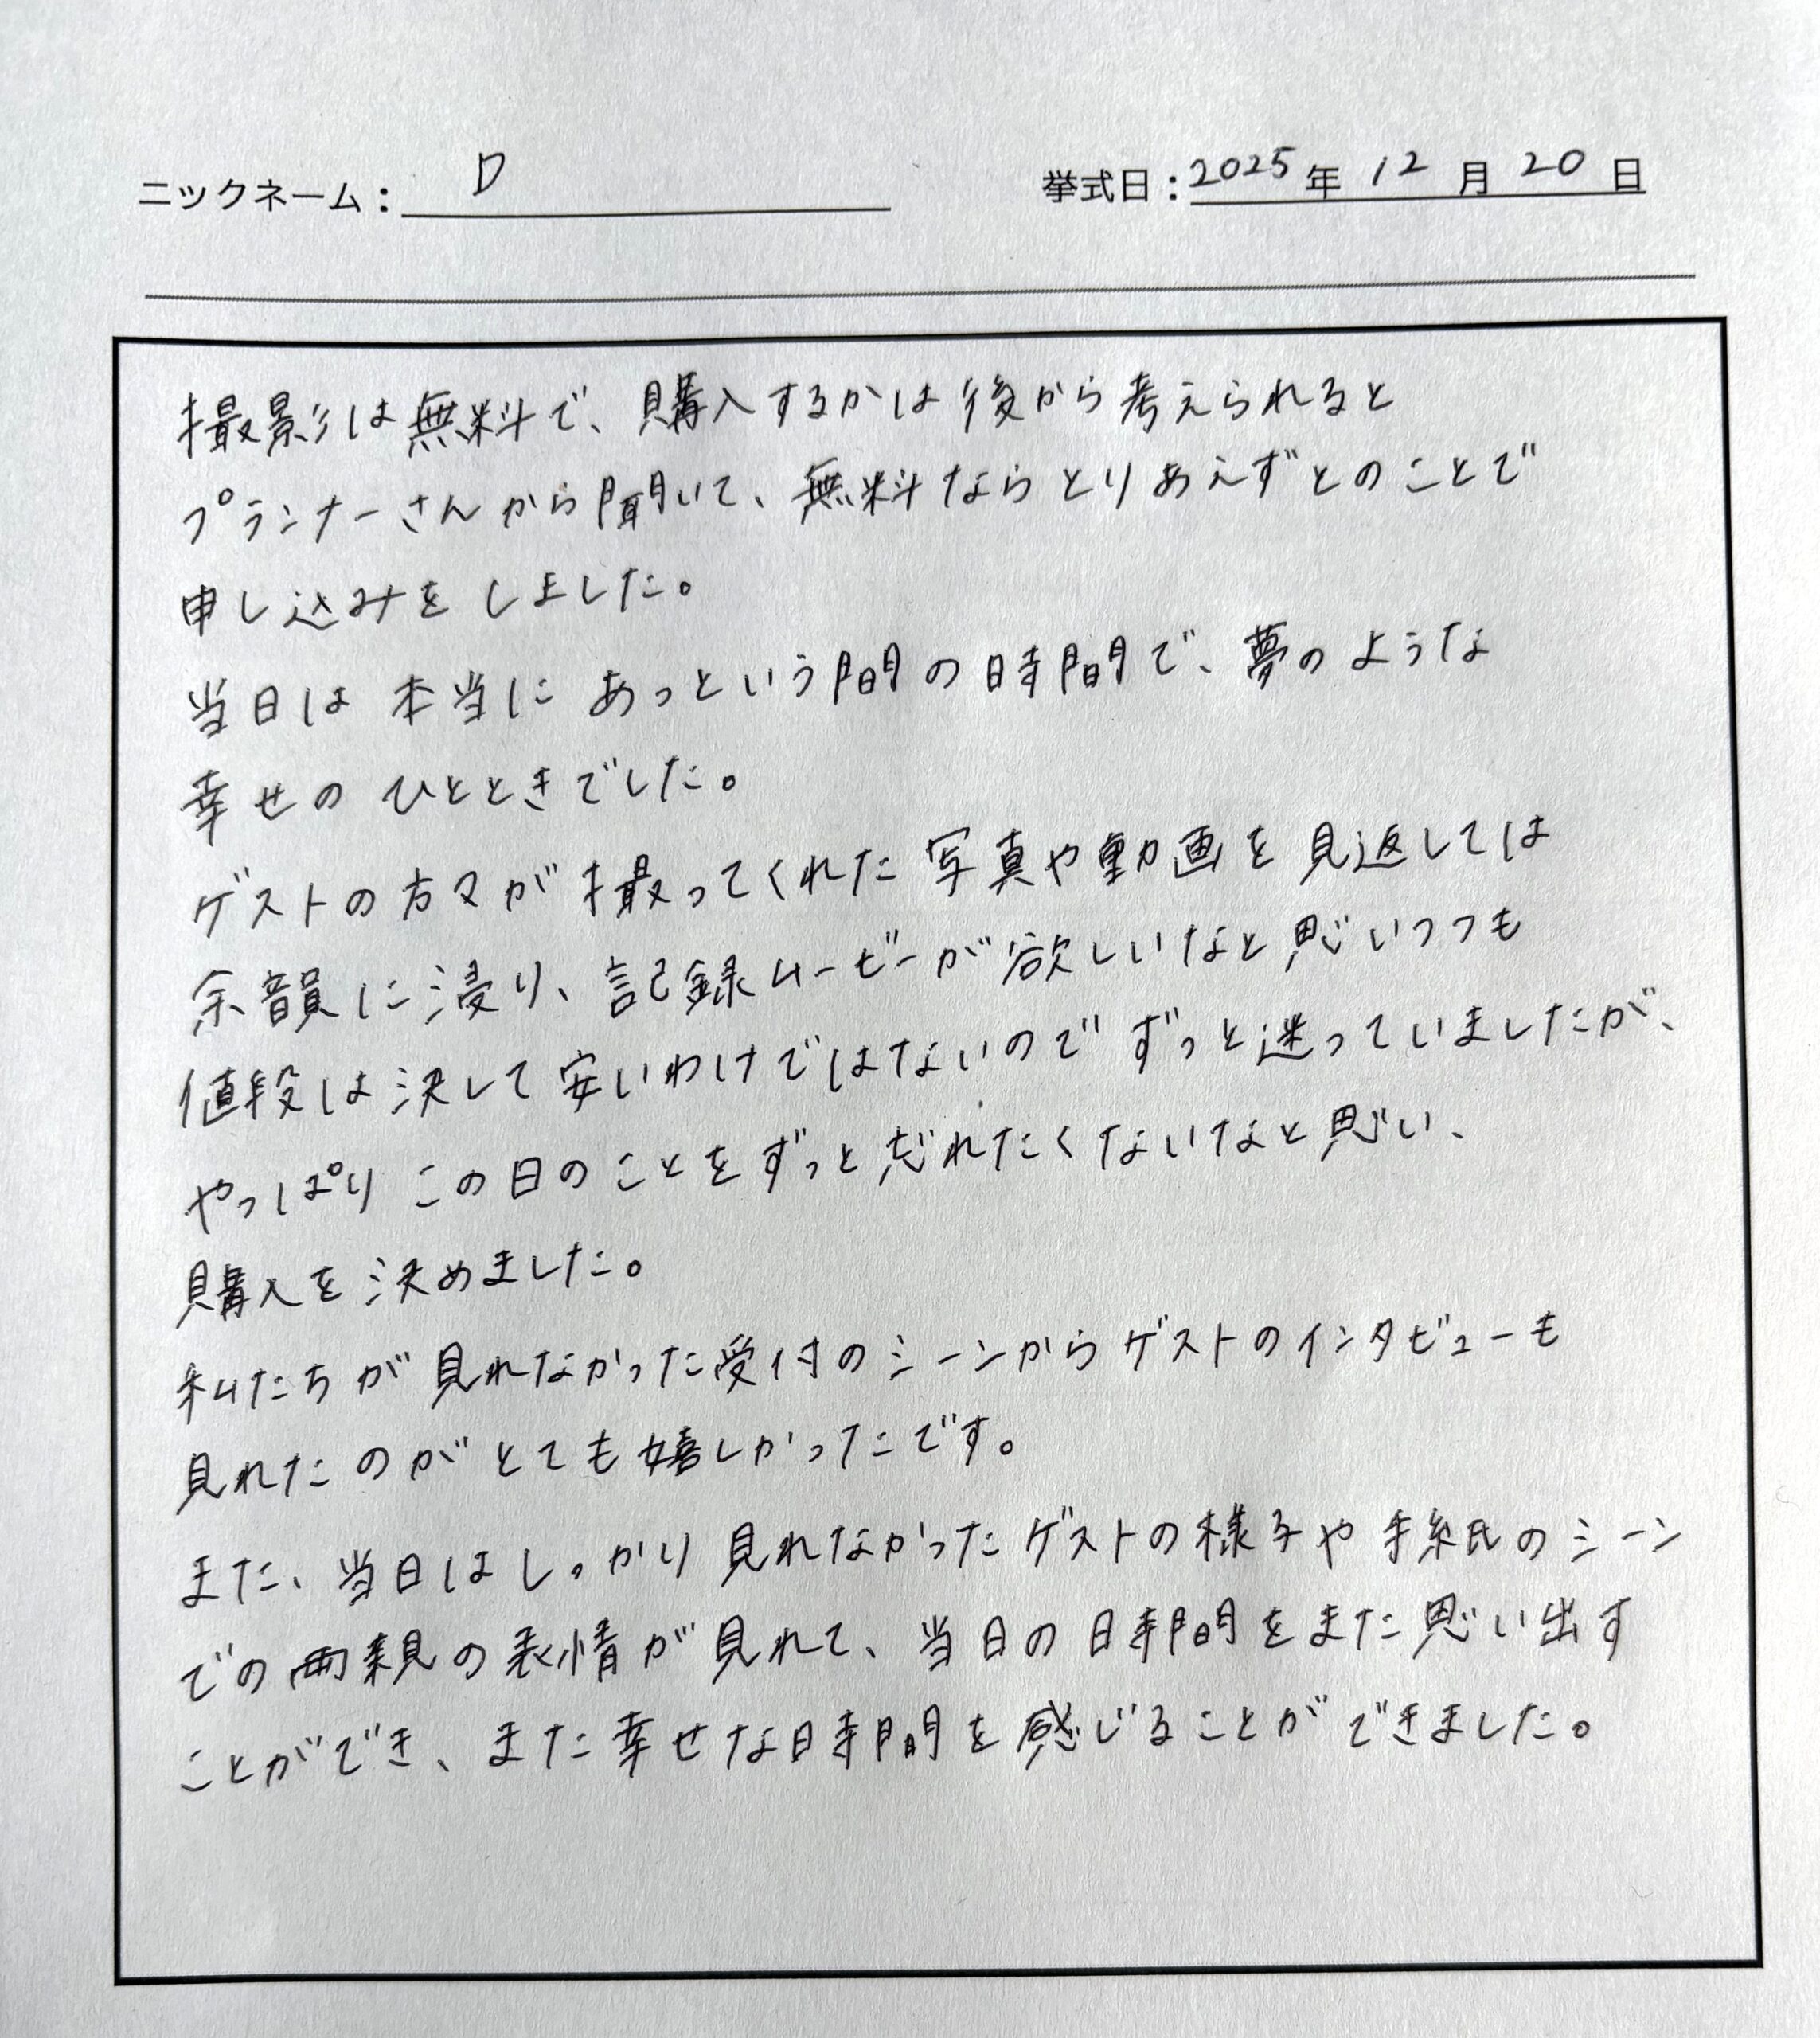 ニックネーム： D 挙式日：2025年 12月 20日
撮影は無料で、購入するかは後から考えられると
プランナーさんから聞いて、無料ならとりあえずとのことで
申し込みをしました。
当日は本当にあっという間の時間で、夢のような
幸せのひとときでした。
ゲストの方々が撮ってくれた写真や動画を見返しては
余韻に浸り、記録ムービーが欲しいなと思いつつも
値段は決して安いわけではないのでずっと迷っていましたが、
やっぱりこの日のことをずっと忘れたくないなと思い、
購入を決めました。
私たちが見れなかった受付のシーンからゲストのインタビューも
見れたのがとても嬉しかったです。
また、当日はしっかり見れなかったゲストの様子や手紙のシーン
での両親の表情が見れて、当日の時間をまた思い出す
ことができ、また幸せな時間を感じることができました。